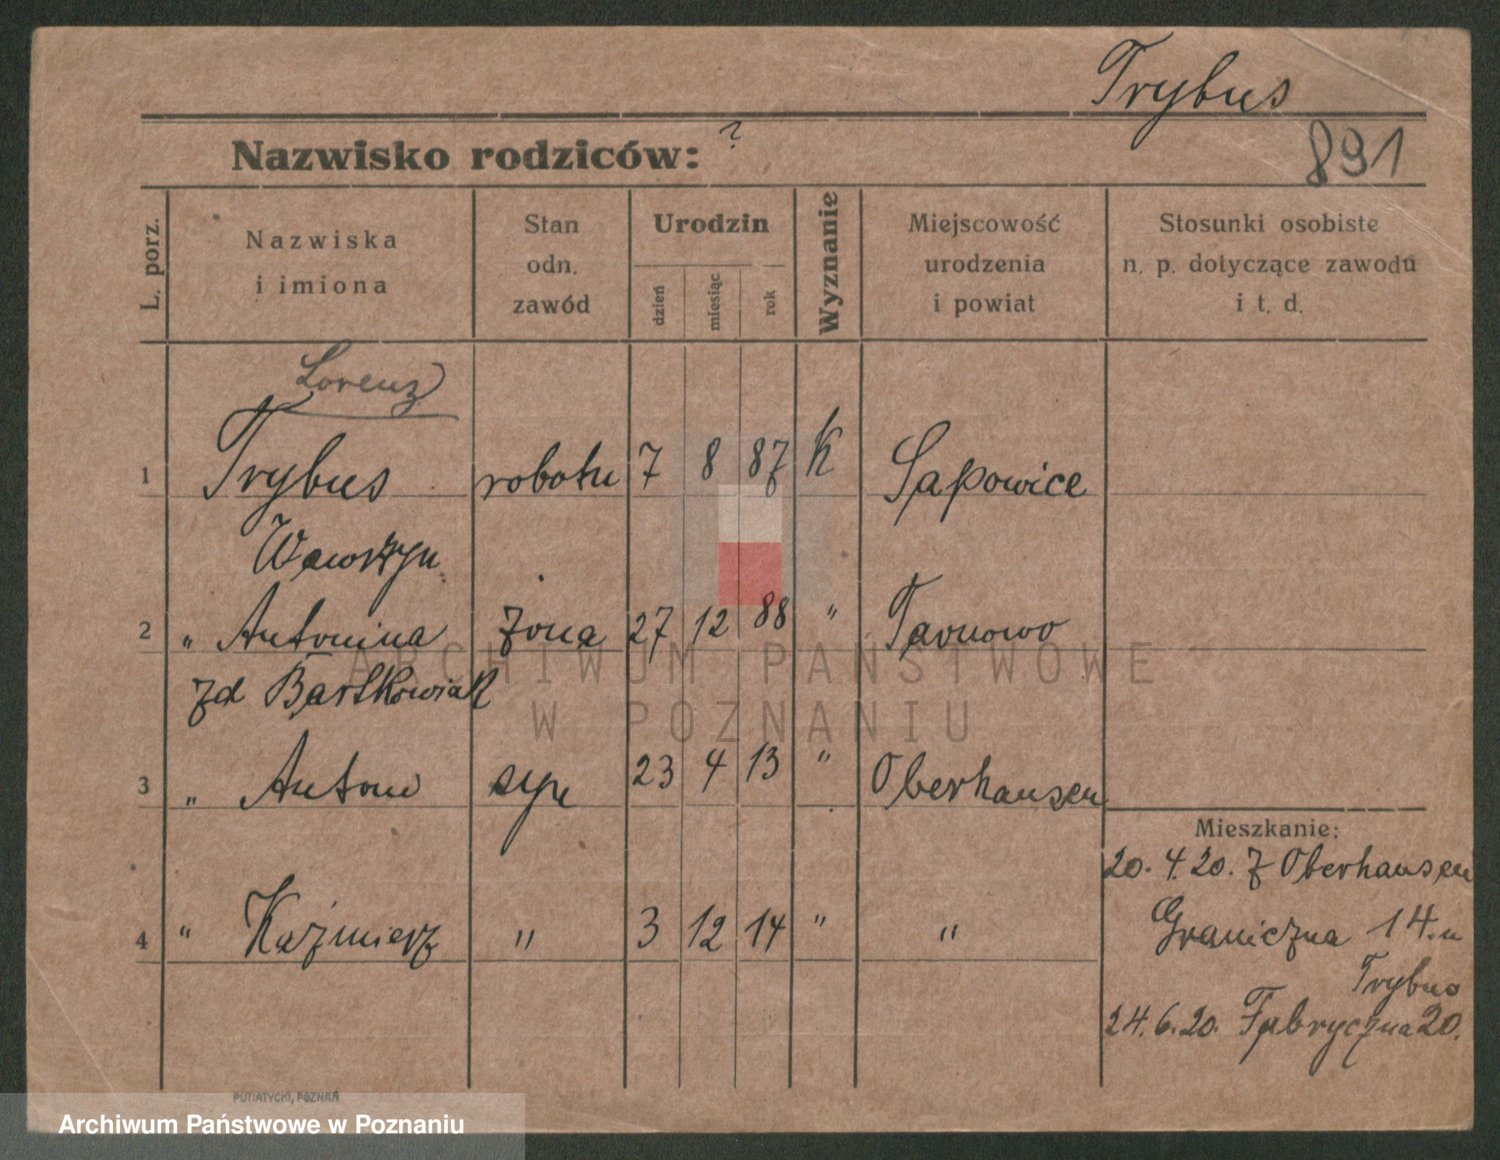 Trybus
891
Nazwisko rodziców: ?
L. porz.
Nazwiska
i imiona
Stan
odn.
zawód
Urodzin
dzień
miesiąc
rok
Wyznanie
Miejscowość
urodzenia
i powiat
Stosunki osobiste
n. p. dotyczące zawodu
i t. d.
Lorenz
1 Trybus robotn 7 8 87 K Sapowice
Wawrzyn
2 " Antonina żona 27 12 88 " Tarnowo
zd Bartkowiak
3 " Antoni syn 23 4 13 " Oberhausen
4 " Kaźmierz " 3 12 14 " "
Mieszkanie:
20. 4. 20. z Oberhausen
Graniczna 14. u
Trybus
24. 6. 20. Fabryczna 20.
PUTIATYCKI, POZNAŃ
ARCHIWUM PAŃSTWOWE
W POZNANIU
Archiwum Państwowe w Poznaniu